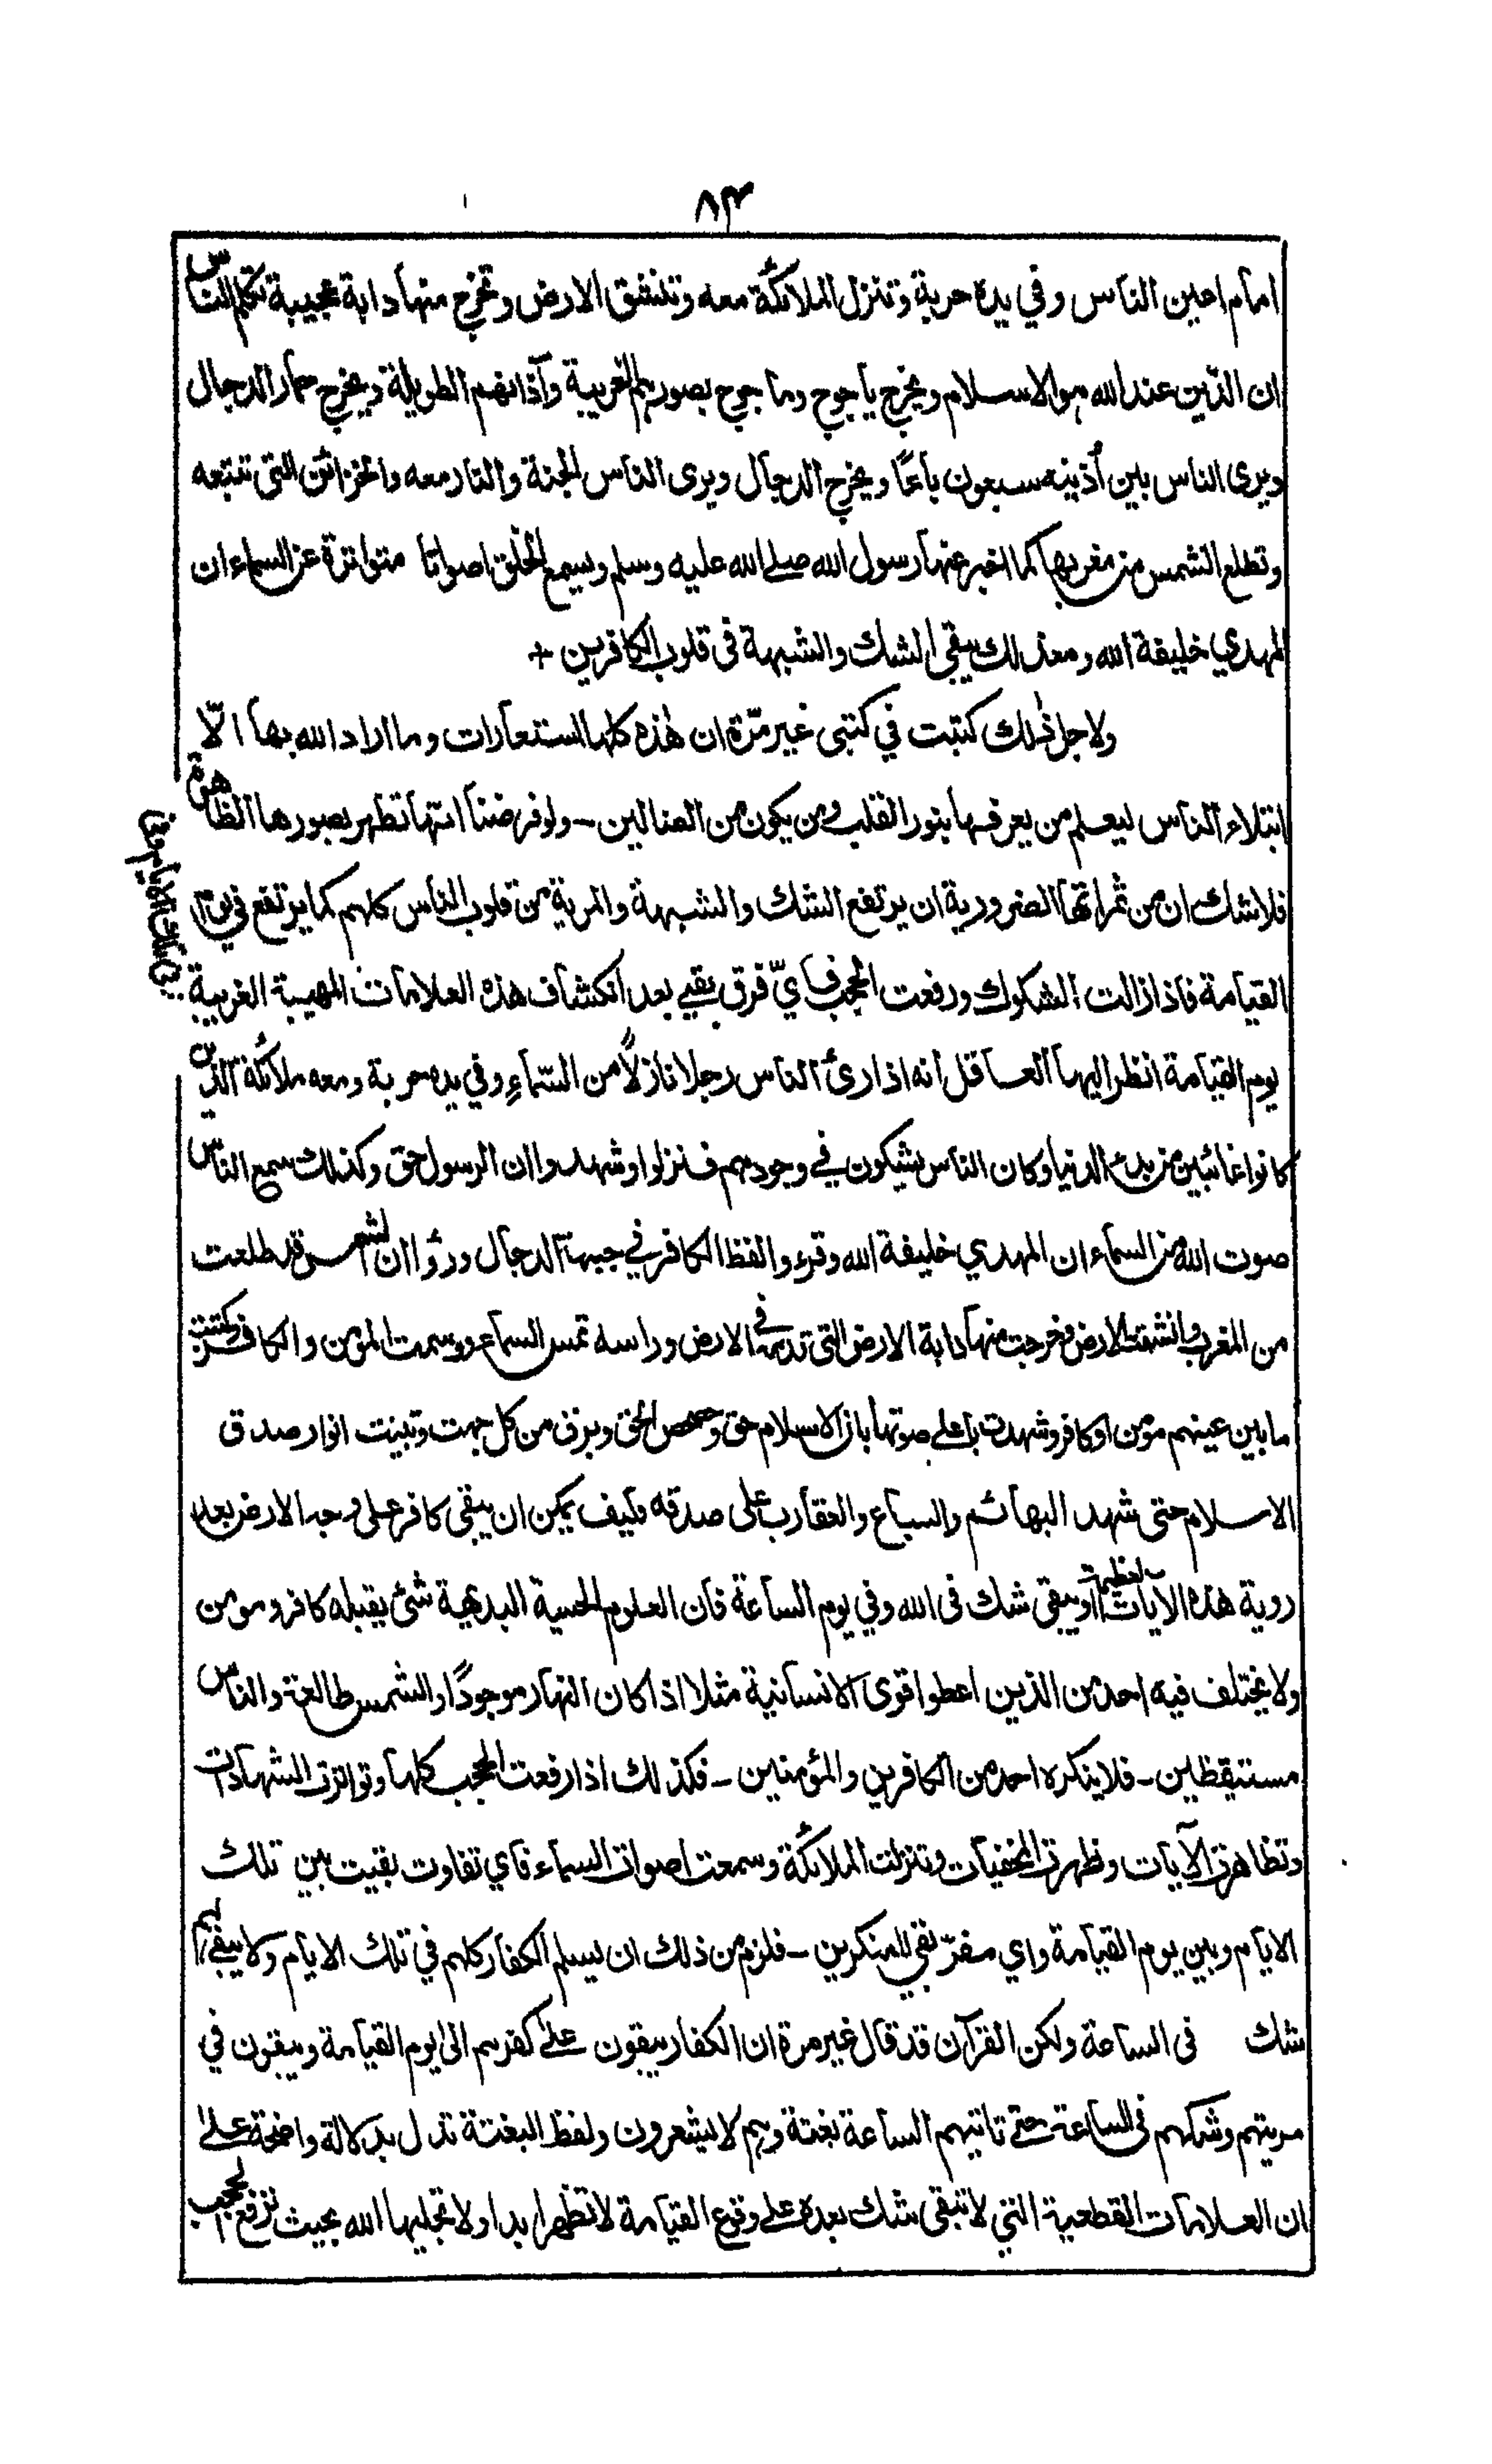 ٨٣
امام اعين الناس وفي يده حربة وتنزل الملائكة معه وتنشق الارض وتخرج منها دابة عجيبة تكلم الناس
ان الدّين عند الله هو الاسلام ويخرج ياجوج وماجوج بصورهم الغريبة وآذانهم الطويلة ويخرج حمار الدجال
ويرى الناس بين أذنيه سبعون باعًا ويخرج الدجال ويرى الناس الجنة والنار معه والخزائن التى تتبعه
وتطلع الشمس من مغربها كما اخبر عنها رسول الله صلے الله عليه وسلم ويسمع الخلق اصواتا متواترة عن السماء ان
المهدي خليفة الله ومعذلك يبقى الشك والشبهة فى قلوب الكافرين +
ولاجل ذٰلك كتبت في كتبى غير مرّة ان هٰذه كلها استعارات وما اراد الله بها الّا
ابتلاء الناس ليعلم من يعرفها بنور القلب ومن يكون من الضالين - ولو فرضنا انها تظهر بصورها الظاهرة
فلاشك ان من ثمراتها الضرورية ان يرتفع الشك والشبهة والمرية من قلوب الناس كلهم كما يرتفع في يوم
القيامة فاذا زالت الشكوك ورفعت الحجب فايّ فرق بقي بعد انكشاف هذه العلامات المهيبة الغريبة
بين تلك الايام و
يوم القيامة انظر ايها العاقل انه اذا رئ الناس رجلا نازلًا من السّماءِ وفي يده حربة ومعه ملائكة الذين
كانوا غائبين من بدء الدنيا وكان الناس يشكون في وجودهم فنزلوا وشهدوا ان الرسول حق وكذلك سمع الناس
صوت الله من السماء ان المهدي خليفة الله وقرءوا لفظ الكافر في جبهة الدجال ورؤا ان الشمس قد طلعت
من المغرب وانشقت الارض وخرجت منها دابة الارض التى قدمه فى الارض وراسه تمس السماء ووسمت المؤمن والكافر وكتبت
ما بين عينهم مؤمن او كافر وشهدت باعلى صوتها بان الاسلام حق وحصحص الحق وبرق من كل جهت وتبينت انوار صدق
الاسلام حتى شهد البهائم والسباع والعقارب على صدقه فكيف يمكن ان يبقى كافر على وجه الارض بعد
روية هذه الايات العظيمة او يبقى شك فى الله وفي يوم الساعة فان العلوم الحسية البديهية شئ يقبله كافر ومومن
ولا يختلف فيه احد من الذين اعطوا قوى الانسانية مثلا اذا كان النهار موجودًا والشمس طالعة والناس
مستيقظين - فلا ينكره احد من الكافرين والمؤمنين - فكذلك اذا رفعت الحجب كلها وتواترت الشهادات
وتظاهرت الآيات وظهرت المخفيات وتنزلت الملائكة وسمعت اصوات السماء فاي تفاوت بقيت بين تلك
الايام وبين يوم القيامة واي مفرّ بقي للمنكرين - فلزم من ذلك ان يسلم الكفار كلهم في تلك الايام ولا يبقى لهم
شك فى الساعة ولكن القرآن قد قال غير مرة ان الكفار يبقون علیٰ كفرهم الى يوم القيامة ويبقون في
مريتهم وشكهم فى الساعة حتے تاتيهم الساعة بغتة وهم لا يشعرون ولفظ البغتة تدل بدلالة واضحة علیٰ
ان العلامات القطعية التي لا تبقى شك بعده على وقوع القيامة لا تظهر ابدا ولا يجليها الله بحيث ترفع الحجب